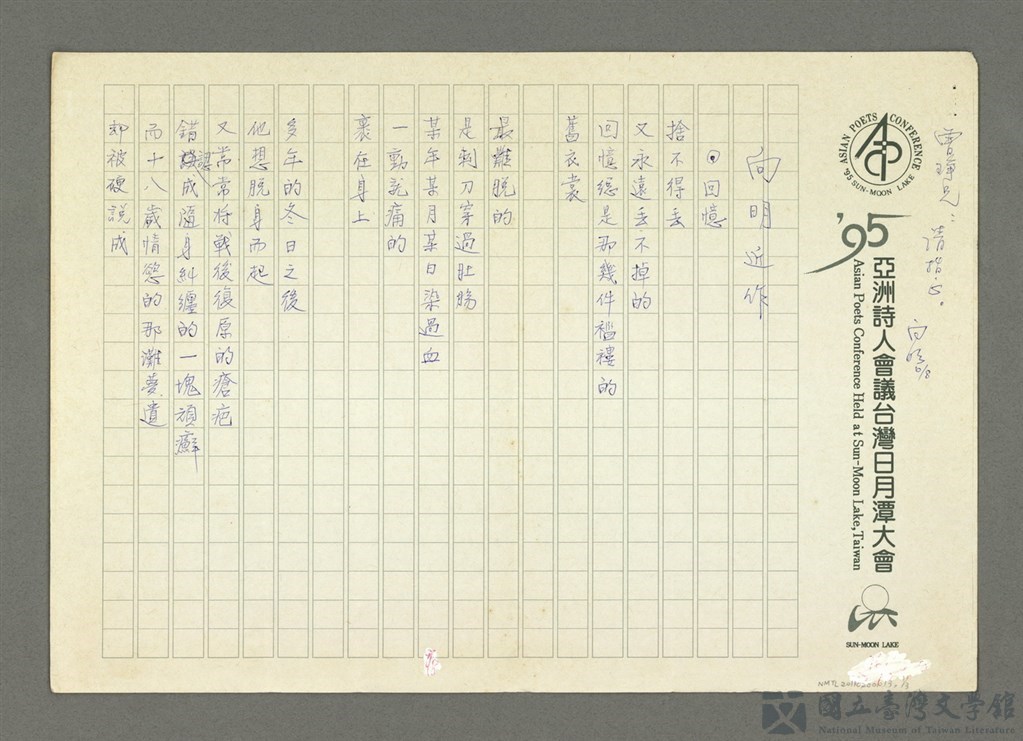 曾琤兄：
請指正。
向明
6/8
ASIAN POETS CONFERENCE
'95 SUN-MOON LAKE
'95
亞洲詩人會議台灣日月潭大會
Asian Poets Conference Held at Sun-Moon Lake, Taiwan
SUN-MOON LAKE
向明近作
⊙回憶
捨不得丢
又永遠丢不掉的
回憶總是那幾件襤褸的
舊衣裳
最難脱的
是刺刀穿過肚腸
某年某月某日染過血
一動就痛的
裹在身上
多年的冬日之後
他想脱身而起
又常常將戰後復原的瘡疤
錯認成隨身糾纏的一塊頑癬
而十八歲情慾的那灘夢遺
却被硬說成
國立臺灣文學館
National Museum of Taiwan Literature